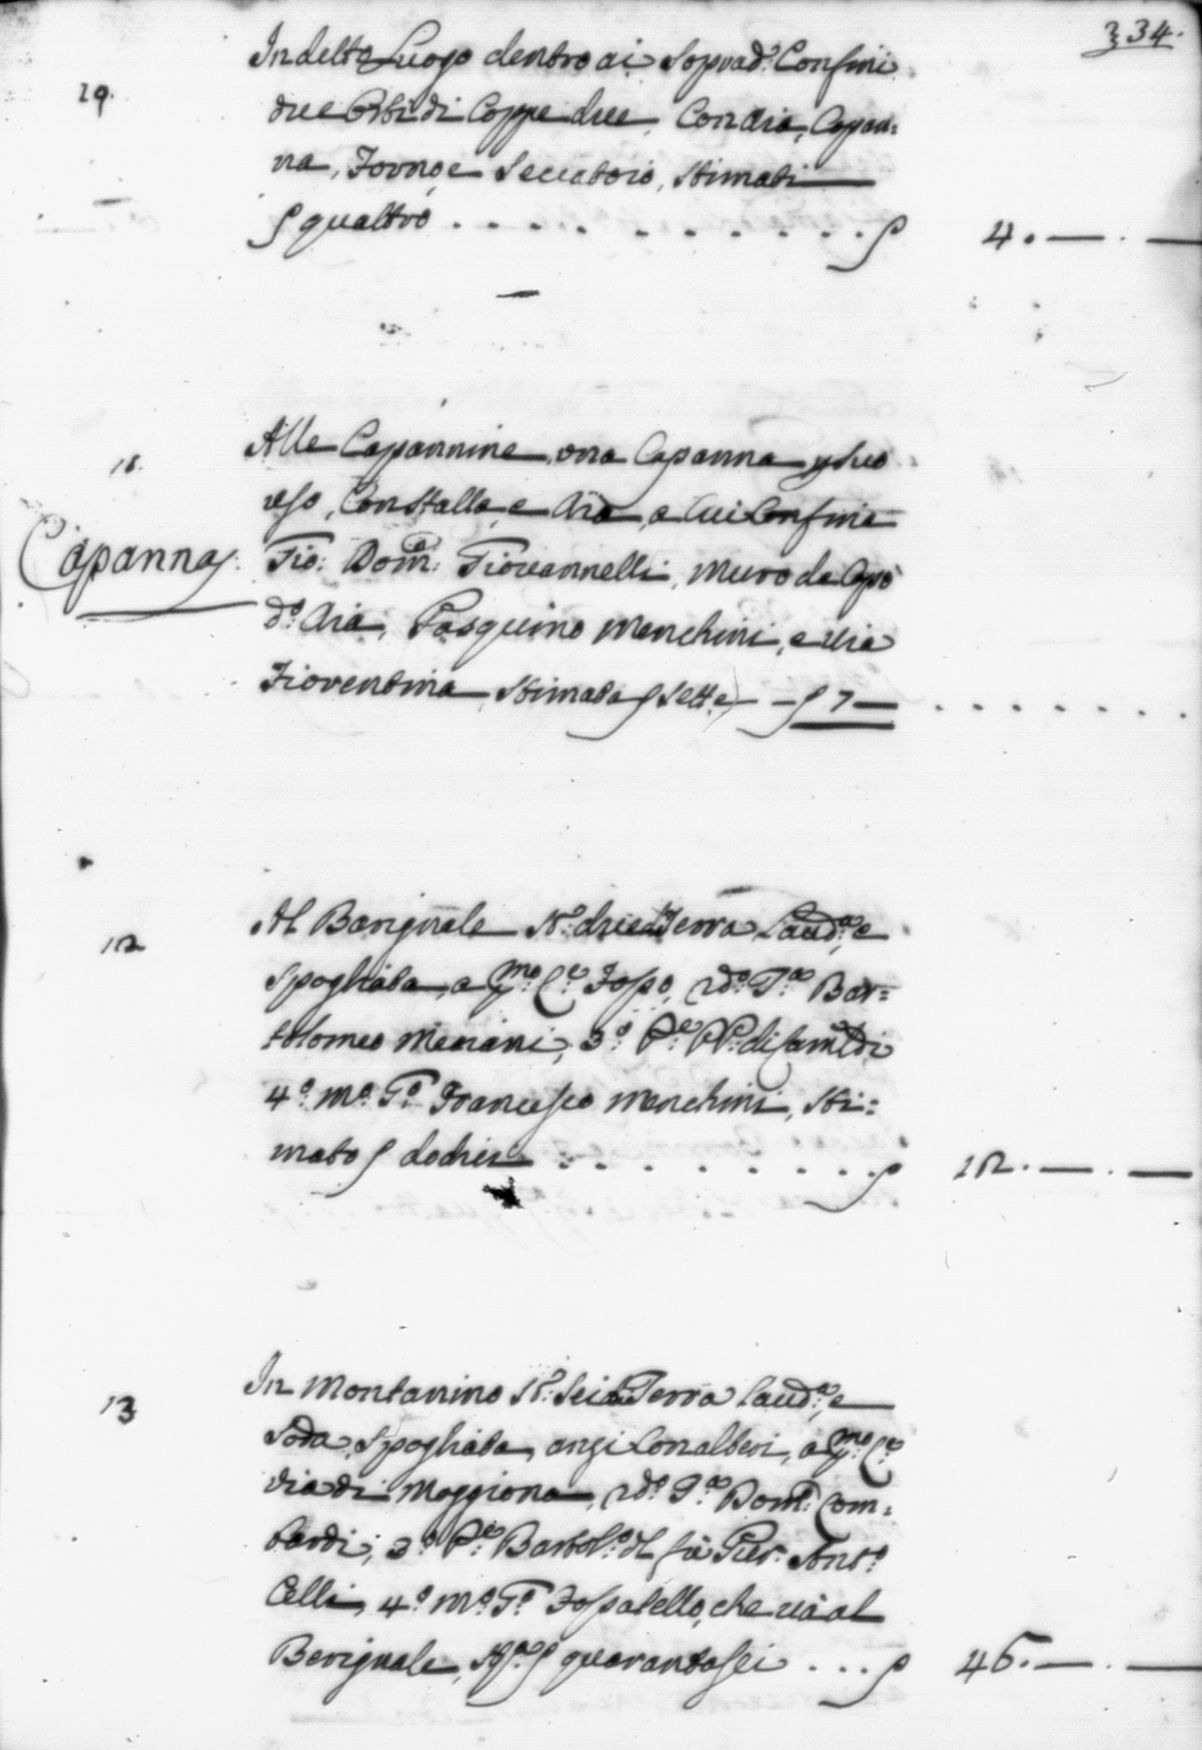 334.
19. In detto Luogo dentro ai soprad.i Confini
due Orti di Coppe due, Con Aia, Capan=
na, Forno, e Seccatoio, stimati
∫ quattro . . . . . . . . . . . . ∫ 4. — . —
18. Alle Capannine, una Capanna p suo
uso, Con stalla, e Aia, a Cui Confina
Capanna. Gio: Dom.co: Giovannelli, Muro da Capo
d.a Aia, Pasquino Menchini, e Via
Fiorentina, Stimata ∫ sette — ∫ 7 — . . . . . . .
12 Al Barignale St.a due di Terra Laud.a, e
Spogliata, a p.mo C.e Fosso, 2do. G.a Bar=
tolomeo Mariani, 3.o P.e PP. di Camldi
4.o M.o G.o Francesco Menchini, Sti=
mato ∫ dodici . . . . . . . . . ∫ 12. — . —
13 In Montanino St.a Sei di Terra Laud.a, e
Soda, Spogliata, anzi Con alberi, a p.mo C.e
Via di Moggiona, 2do. G.a Dom.co Lom=
bardi, 3.o P.e Bartol.o del fù Pier Ant.o
Celli, 4.o M.o G.o Fossatello, che và al
Berignale, St.a ∫ quarantasei . . . ∫ 46. — . —